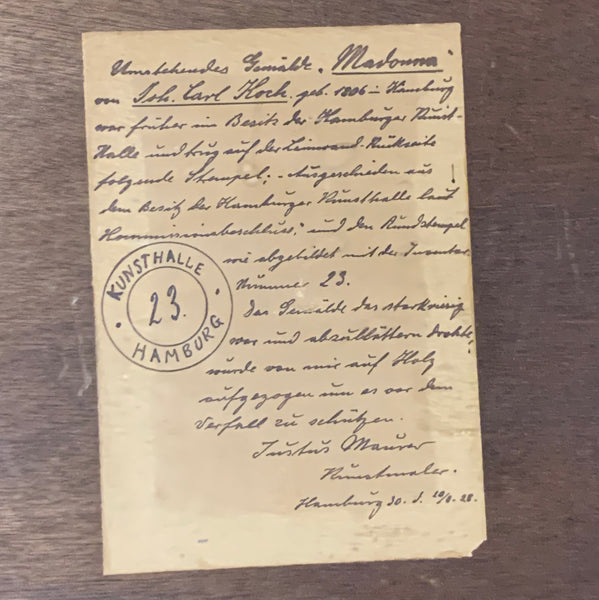 Umstehendes Gemälde „Madonna“
von Joh. Carl Koch. geb. 1806 in Hamburg
war früher im Besitz der Hamburger Kunst-
Halle und trug auf der Leinwand-Rückseite
folgende Stempel; - Ausgeschieden aus
dem Besitz der Hamburger Kunsthalle laut
Kommissionsbeschluss," und den Rundstempel
wie abgebildet mit der Inventar
Nummer 23.
KUNSTHALLE
23.
HAMBURG
Das Gemälde das starkrissig
war und abzublättern drohte,
wurde von mir auf Holz
aufgezogen um es vor dem
Verfall zu schützen.
Justus Maurer
Kunstmaler.
Hamburg 30. d. 28.